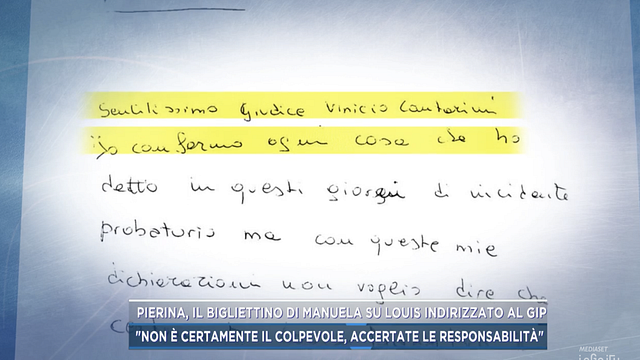 Gentilissimo Giudice Vinicio Cantarini
Io confermo ogni cosa che ho
detto in questi giorni di incidente
probatorio ma con queste mie
dichiarazioni non voglio dire che
PIERINA, IL BIGLIETTINO DI MANUELA SU LOUIS INDIRIZZATO AL GIP
"NON È CERTAMENTE IL COLPEVOLE, ACCERTATE LE RESPONSABILITÀ"
MEDIASET
infinity